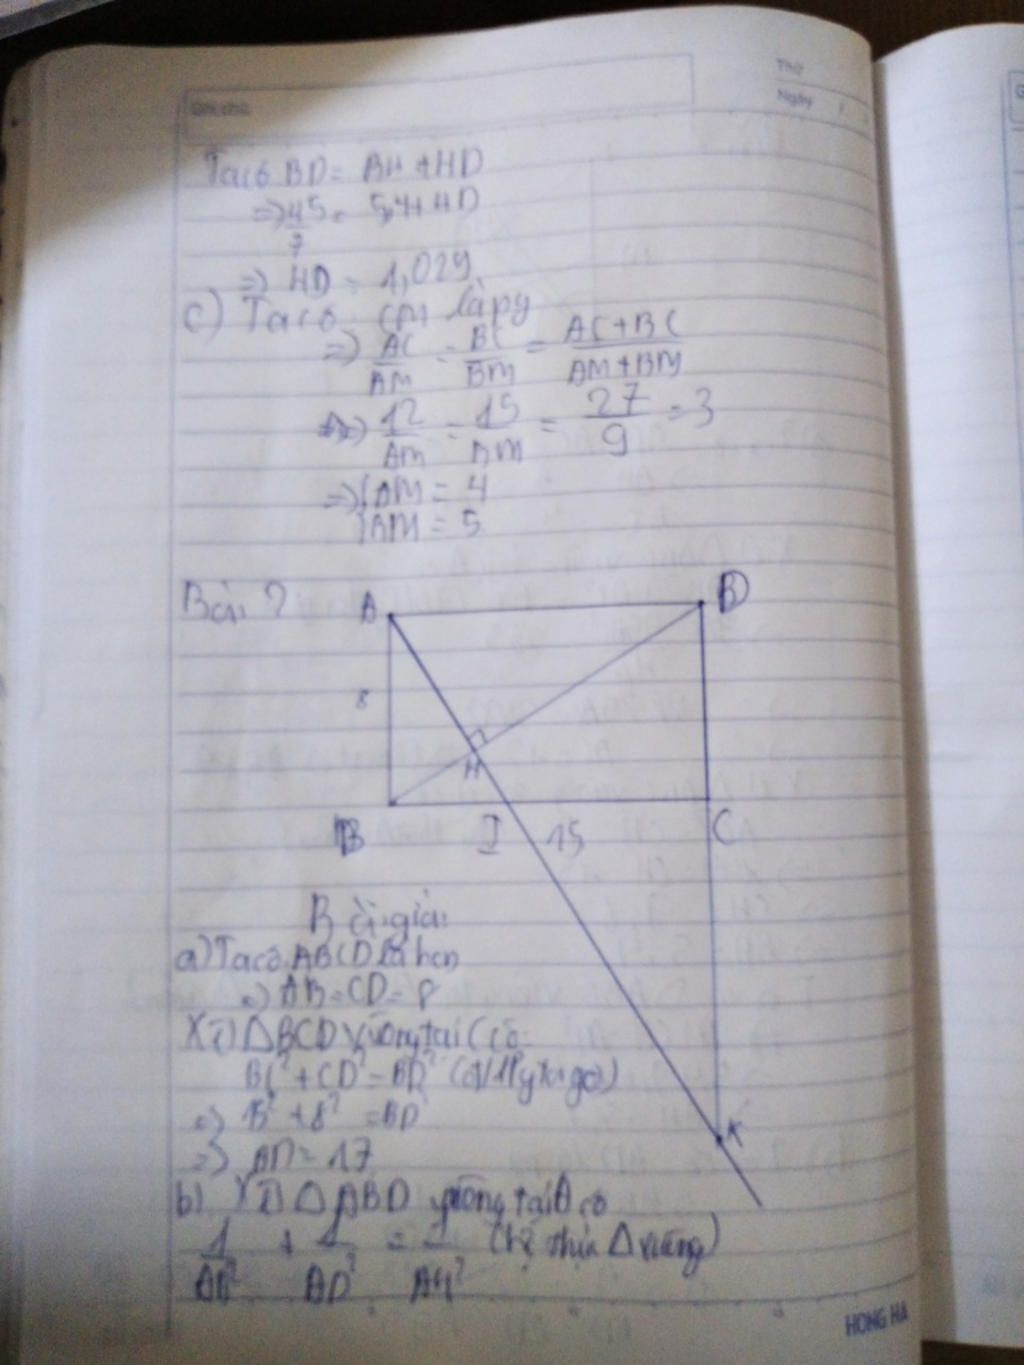 Ghi chú
Thứ
Ngày /
Ta có BD = BH + HD
=> 45/7 = 5,4 + HD
=> HD = 1,029
c) Ta có CM là pg
=> AC/AM = BC/BM = AC+BC/AM+BM
=> 12/AM = 15/BM = 27/9 = 3
=> { AM = 4
{ BM = 5
Bài 7
A
D
8
H
B
I
15
C
K
Bài giải
a) Ta có ABCD là hcn
=> AB = CD = 8
Xét △BCD vuông tại C có
BC² + CD² = BD² (đ/l Pytago)
=> 15² + 8² = BD
=> BD = 17
b) Xét △ABD vuông tại A có
1/AB² + 1/AD² = 1/AH² (hệ thức △ vuông)
HONG HA